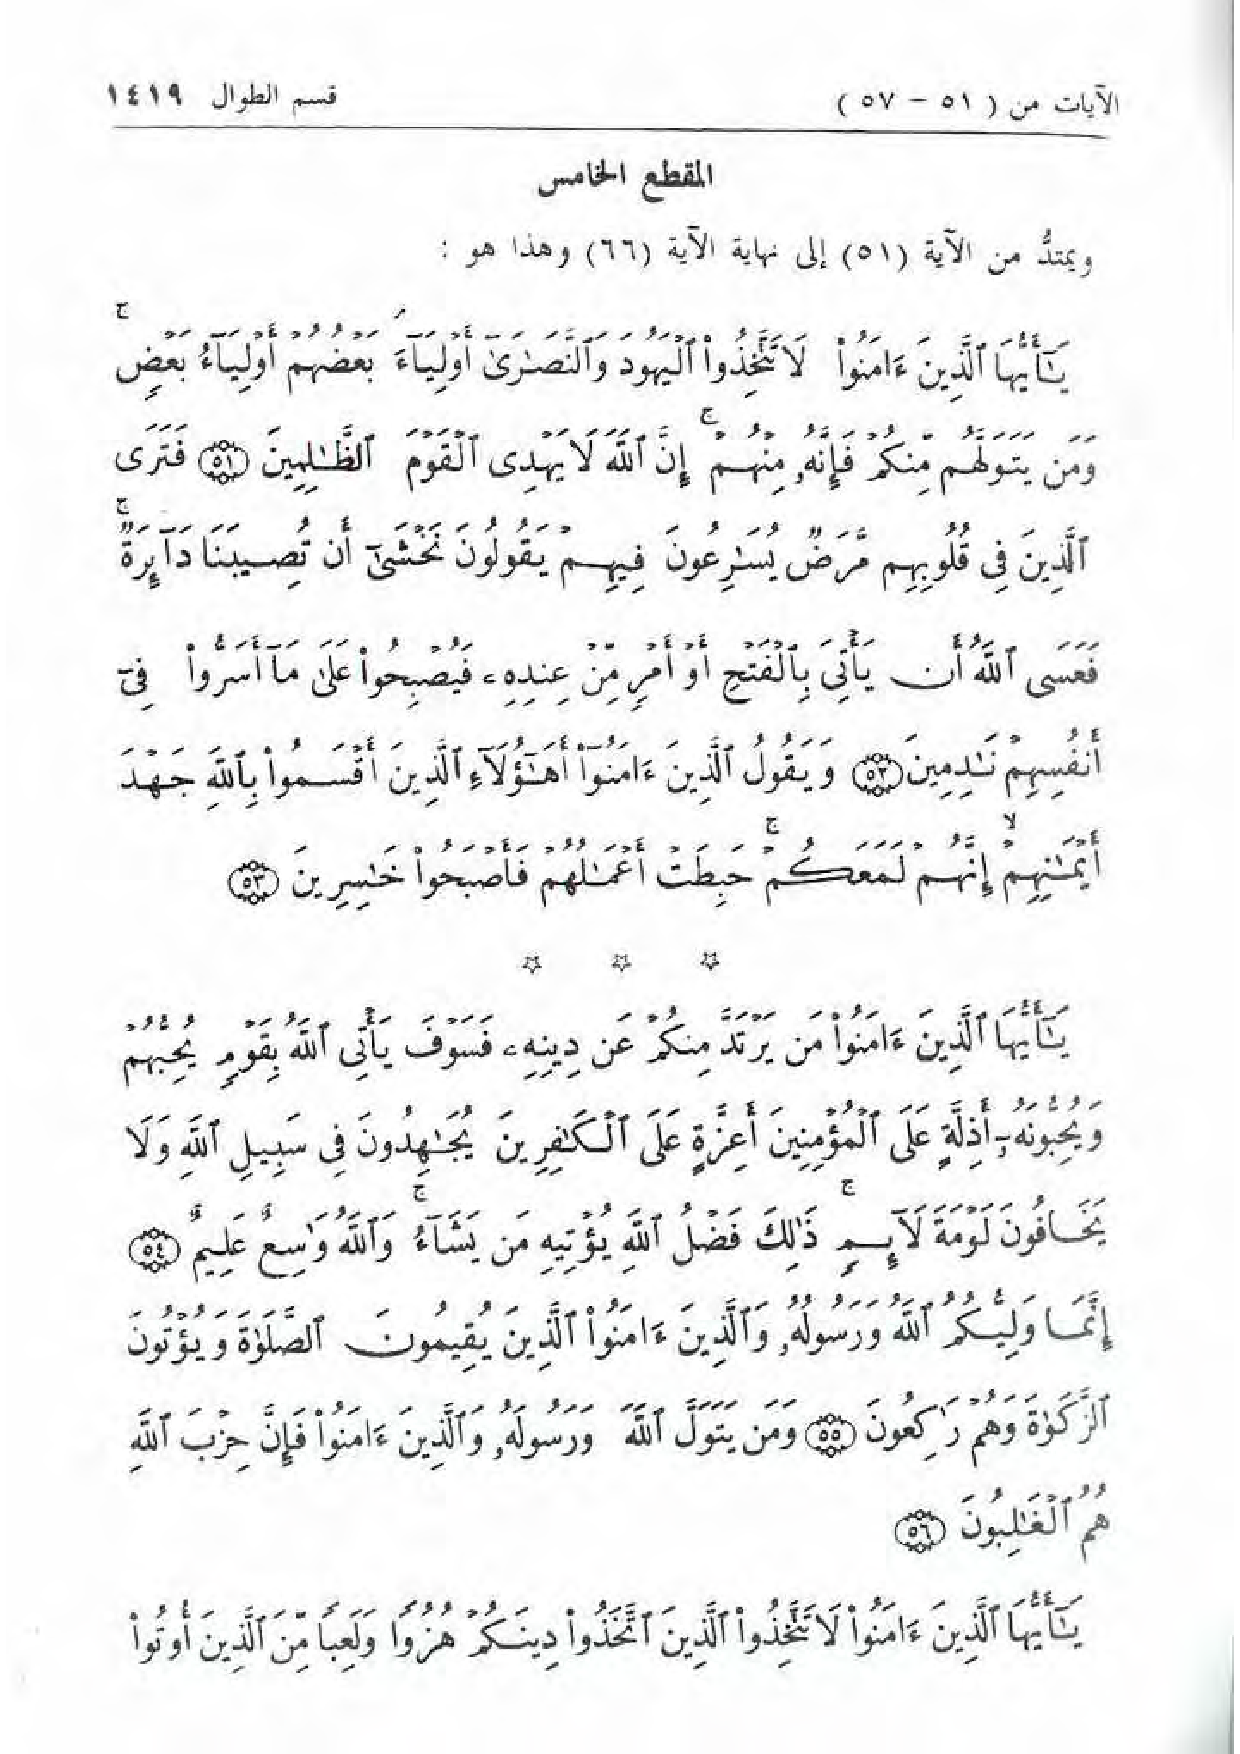 الآيات من ( ٥١ – ٥٧ )
قسم الطوال ١٤١٩
المقطع الخامس
ويمتدُّ من الآية (٥١) إلى نهاية الآية (٦٦) وهذا هو :
يَـٰٓأَيُّهَا ٱلَّذِينَ ءَامَنُوا۟ لَا تَتَّخِذُوا۟ ٱلْيَهُودَ وَٱلنَّصَـٰرَىٰٓ أَوْلِيَآءَ ۘ بَعْضُهُمْ أَوْلِيَآءُ بَعْضٍ ۚ
وَمَن يَتَوَلَّهُم مِّنكُمْ فَإِنَّهُۥ مِنْهُمْ ۚ إِنَّ ٱللَّهَ لَا يَهْدِى ٱلْقَوْمَ ٱلظَّـٰلِمِينَ ٥١ فَتَرَى
ٱلَّذِينَ فِى قُلُوبِهِم مَّرَضٌ يُسَـٰرِعُونَ فِيهِمْ يَقُولُونَ نَخْشَىٰٓ أَن تُصِيبَنَا دَآئِرَةٌ ۚ
فَعَسَى ٱللَّهُ أَن يَأْتِىَ بِٱلْفَتْحِ أَوْ أَمْرٍ مِّنْ عِندِهِۦ فَيُصْبِحُوا۟ عَلَىٰ مَآ أَسَرُّوا۟ فِىٓ
أَنفُسِهِمْ نَـٰدِمِينَ ٥٢ وَيَقُولُ ٱلَّذِينَ ءَامَنُوٓا۟ أَهَـٰٓؤُلَآءِ ٱلَّذِينَ أَقْسَمُوا۟ بِٱللَّهِ جَهْدَ
أَيْمَـٰنِهِمْ ۙ إِنَّهُمْ لَمَعَكُمْ ۚ حَبِطَتْ أَعْمَـٰلُهُمْ فَأَصْبَحُوا۟ خَـٰسِرِينَ ٥٣
☆ ☆ ☆
يَـٰٓأَيُّهَا ٱلَّذِينَ ءَامَنُوا۟ مَن يَرْتَدَّ مِنكُمْ عَن دِينِهِۦ فَسَوْفَ يَأْتِى ٱللَّهُ بِقَوْمٍ يُحِبُّهُمْ
وَيُحِبُّونَهُۥٓ أَذِلَّةٍ عَلَى ٱلْمُؤْمِنِينَ أَعِزَّةٍ عَلَى ٱلْكَـٰفِرِينَ يُجَـٰهِدُونَ فِى سَبِيلِ ٱللَّهِ وَلَا
يَخَافُونَ لَوْمَةَ لَآئِمٍ ۚ ذَٰلِكَ فَضْلُ ٱللَّهِ يُؤْتِيهِ مَن يَشَآءُ ۚ وَٱللَّهُ وَٰسِعٌ عَلِيمٌ ٥٤
إِنَّمَا وَلِيُّكُمُ ٱللَّهُ وَرَسُولُهُۥ وَٱلَّذِينَ ءَامَنُوا۟ ٱلَّذِينَ يُقِيمُونَ ٱلصَّلَوٰةَ وَيُؤْتُونَ
ٱلزَّكَوٰةَ وَهُمْ رَٰكِعُونَ ٥٥ وَمَن يَتَوَلَّ ٱللَّهَ وَرَسُولَهُۥ وَٱلَّذِينَ ءَامَنُوا۟ فَإِنَّ حِزْبَ ٱللَّهِ
هُمُ ٱلْغَـٰلِبُونَ ٥٦
يَـٰٓأَيُّهَا ٱلَّذِينَ ءَامَنُوا۟ لَا تَتَّخِذُوا۟ ٱلَّذِينَ ٱتَّخَذُوا۟ دِينَكُمْ هُزُوًا وَلَعِبًا مِّنَ ٱلَّذِينَ أُوتُوا۟